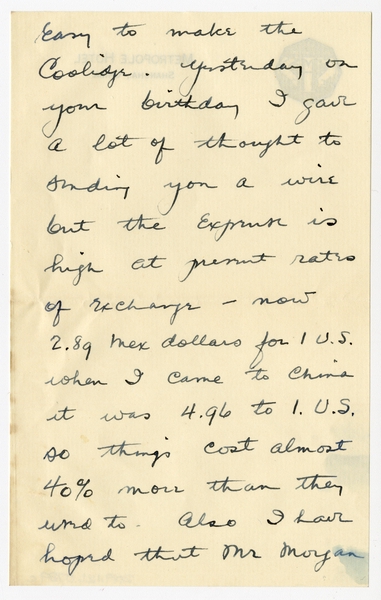 Easy to make the
Coolidge. Yesterday on
your birthday I gave
a lot of thought to
sending you a wire
but the expense is
high at present rates
of exchange – now
2.89 Mex dollars for 1 U.S.
when I came to China
it was 4.96 to 1. U.S.
so things cost almost
40% more than they
used to. Also I have
hoped that Mr Morgan